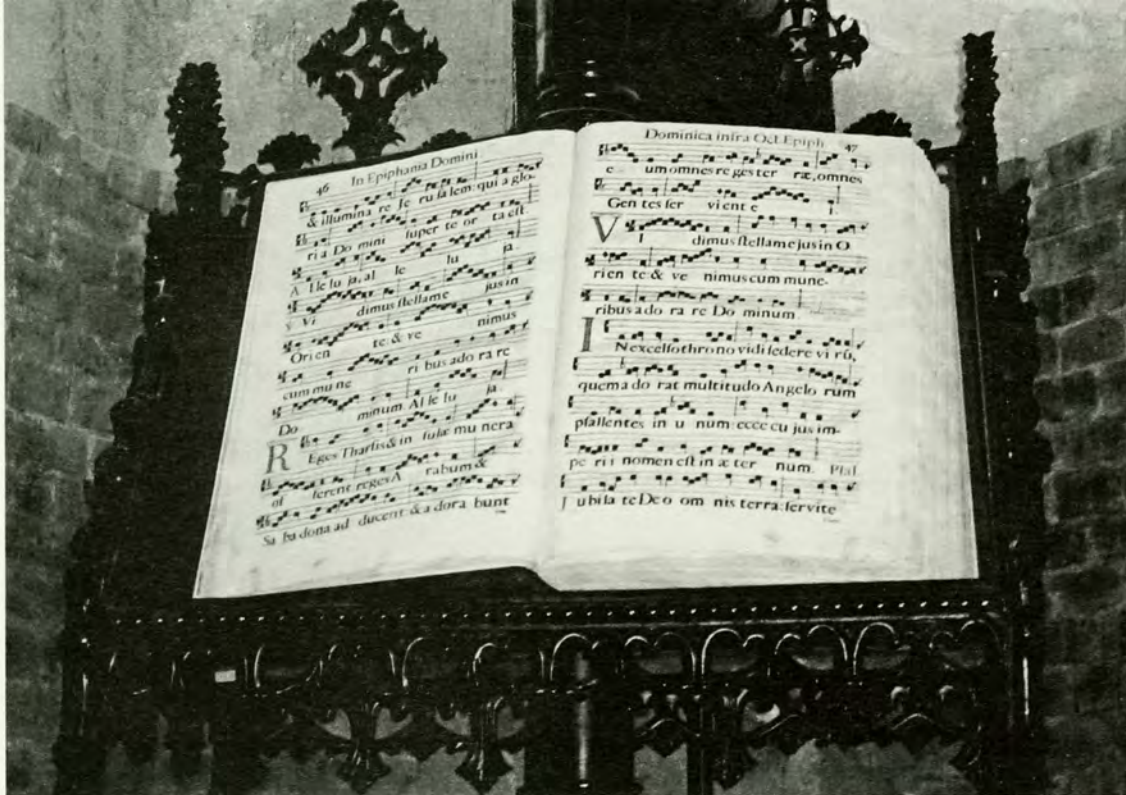 46 In Epiphania Domini
& illumina re Je ru salem: qui a glo-
ri a Do mini super te or ta est.
A l le lu ja, al le lu ja
V Vi dimus stellam e jus in
Ori en te: & ve nimus
cum mu ne ri bus ado ra re
Do minum Al le lu ja.
R Eges Tharsis & in sulæ mu nera
of ferent: reges A rabum &
Sa ba dona ad ducent: & a dora bunt
Dominica infra Oct Epiph 47
e um omnes re ges ter ræ, omnes
Gen tes ser vi ent e i.
V I dimus stellam e jus in O
ri en te & ve nimus cum mune-
ribus ado ra re Do minum
I N excelso thro no vidi sedere vi rũ,
quem a do rat multitudo Angelo rum
psallentes in u num: ecce cu jus im-
pe ri i nomen est in æ ter num. Psal.
J ubila te Deo om nis terra: servite